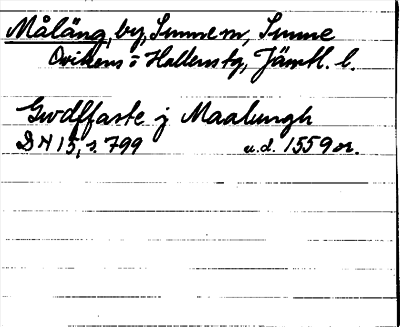 Måläng, by, Sunne sn, Sunne
Ovikens o Hallens tg, Jämtl. l.
Gvdffaste j Maalungh
DN 15, s. 799 u.d. 1559 or.